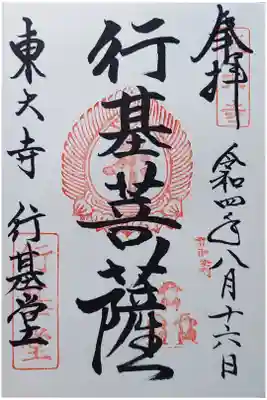 奉拝
令和四年八月十六日
行基菩薩
東大寺 行基堂